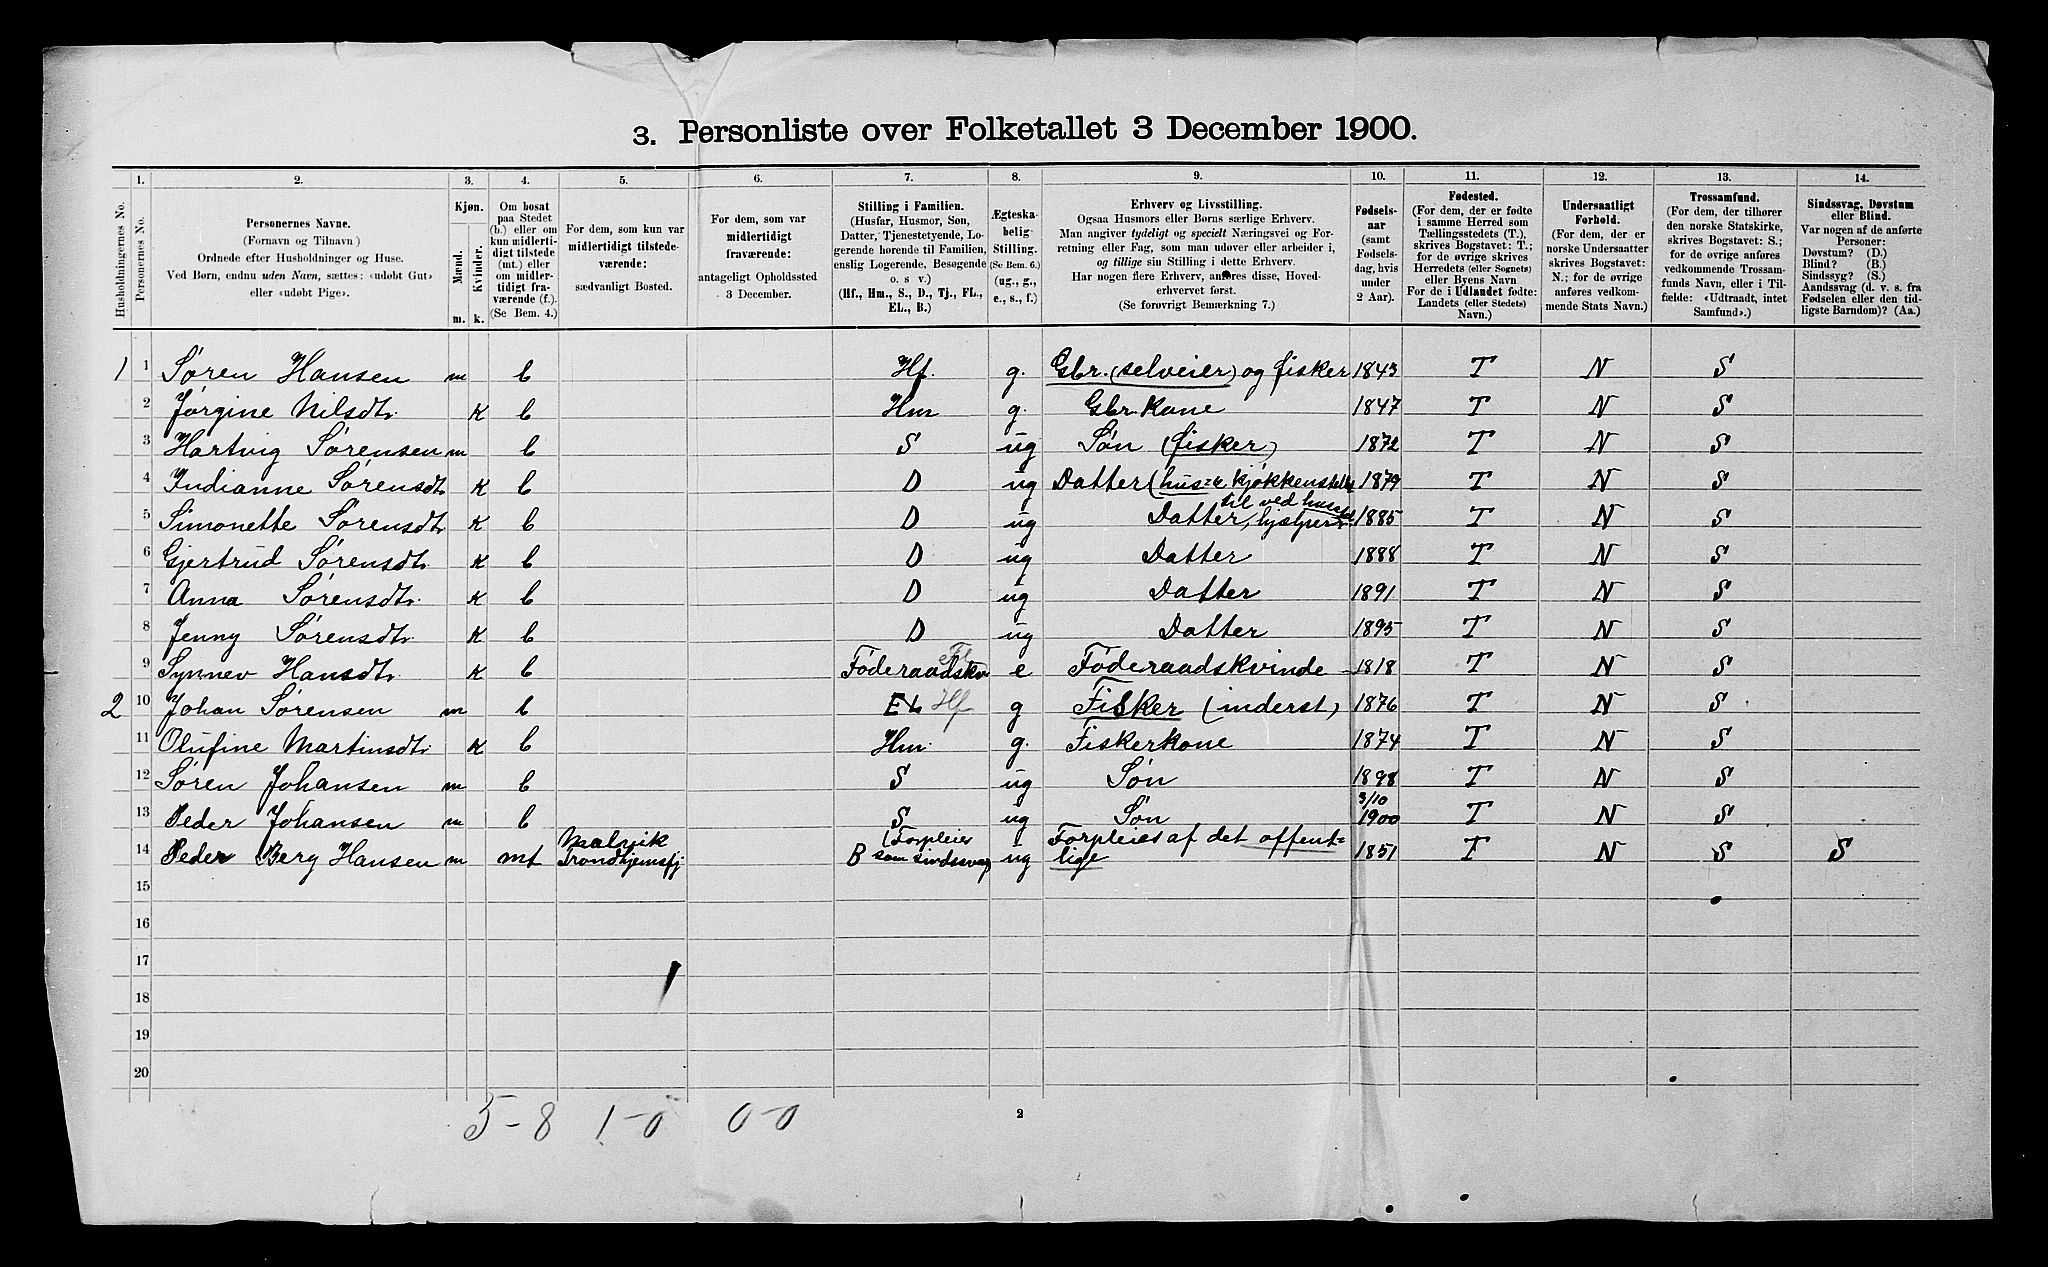 3. Personliste over Folketallet 3 December 1900.
1. 2. 3. 4. 5. 6. 7. 8. 9. 10. 11. 12. 13. 14.
Husholdningernes No.
Personernes No.
Personernes Navne.
(Fornavn og Tilnavn)
Ordnede efter Husholdninger og Huse.
Ved Børn, endnu uden Navn, sættes: «udøbt Gut»
eller «udøbt Pige».
Kjøn.
Mænd. Kvinder.
m. k.
Om bosat
paa Stedet
(b.) eller om
kun midlerti-
digt tilstede
(mt.) eller
om midler-
tidigt fra-
værende (f.).
(Se Bem. 4.)
For dem, som kun var
midlertidigt tilstede-
værende:
sædvanligt Bosted.
For dem, som var
midlertidigt
fraværende:
antageligt Opholdssted
3 December.
Stilling i Familien.
(Husfar, Husmor, Søn,
Datter, Tjenestetyende, Lo-
gerende hørende til Familien,
enslig Logerende, Besøgende
o. s. v.)
(Hf., Hm., S., D., Tj., FL.,
EL., B.)
Ægteska-
belig
Stilling.
(Se Bem. 6.)
(ug., g.,
e., s., f.)
Erhverv og Livsstilling.
Ogsaa Husmors eller Børns særlige Erhverv.
Man angiver tydeligt og specielt Næringsvei og For-
retning eller Fag, som man udover eller arbeider i,
og tillige sin Stilling i dette Erhverv.
Har nogen flere Erhverv, anføres disse, Hoved-
erhvervet først.
(Se forøvrigt Bemærkning 7.)
Fødsels-
aar
(samt
Fødsels-
dag, hvis
under
2 Aar).
Fødested.
(For dem, der er fødte
i samme Herred som
Tællingsstedets (T.),
skrives Bogstavet: T.;
for de øvrige skrives
Herredets (eller Sognets)
eller Byens Navn
For de i Udlandet fødte:
Landets (eller Stedets)
Navn.)
Undersaatligt
Forhold.
(For dem, der er
norske Undersaatter
skrives Bogstavet:
N.; for de øvrige
anføres vedkom-
mende Stats Navn.)
Trossamfund.
(For dem, der tilhører
den norske Statskirke,
skrives Bogstavet: S.;
for de øvrige anføres
vedkommende Trossam-
funds Navn, eller i Til-
fælde: «Udtraadt, intet
Samfund».)
Sindssvag, Døvstum
eller Blind.
Var nogen af de anførte
Personer:
Døvstum? (D.)
Blind? (B.)
Sindssyg? (S.)
Aandssvag (d. v. s. fra
Fødselen eller den tid-
ligste Barndom)? (Aa.)
1 1 Søren Hansen m b Hf. g. Gbr. (selveier) og fisker 1843 T N S
2 Jørgine Nilsdtr. K b Hm g. Gbr. Kone 1847 T N S
3 Hartvig Sørensen m b S ug Søn (fisker) 1872 T N S
4 Indianne Sørensdtr. K b D ug Datter (hus= & kjøkkenstell 1879 T N S
5 Simonette Sørensdtr. K b D ug Datter, hjelper til ved husstel 1885 T N S
6 Gjertrud Sørensdtr. K b D ug Datter 1888 T N S
7 Anna Sørensdtr. K b D ug Datter 1891 T N S
8 Jenny Sørensdtr. K b D ug Datter 1895 T N S
9 Synnev Hansdtr. K b Føderaadskv. Fl e Føderaadskvinde 1818 T N S
2 10 Johan Sørensen m b EL Hf g Fisker (inderst) 1876 T N S
11 Olufine Martinsdtr. K b Hm. g. Fiskerkone 1874 T N S
12 Søren Johansen m b S ug Søn 1898 T N S
13 Peder Johansen m b S ug Søn 3/10 1900 T N S
14 Peder Berg Hansen m mt Malvik Trondhjemsfj B (Forpleies som sindssvag) ug Forpleies af det offent=
lige 1851 T N S S
15
16
17
18
19
20
5-8 1-0 0-0
2